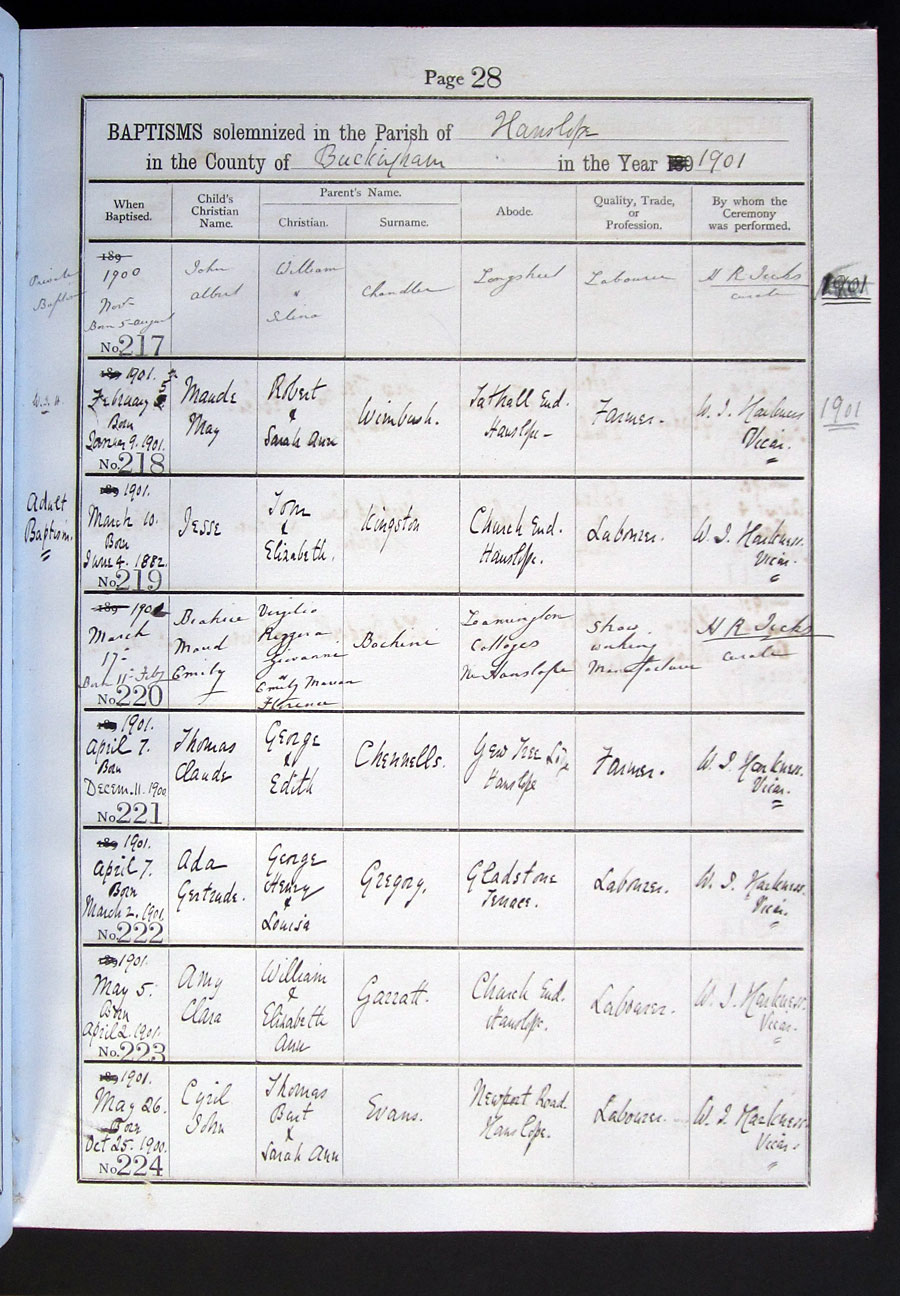 Page 28
BAPTISMS solemnized in the Parish of Hanslope
in the County of Buckingham in the Year 189 1901
When Baptised.
Child's Christian Name.
Parent's Name.
Christian.
Surname.
Abode.
Quality, Trade, or Profession.
By whom the Ceremony was performed.
Private
Baptism
189
1900
Nov
Born 5 August
No. 217
John
Albert
William
&
Selina
Chandler
Longstreet
Labourer
H R Jecks
curate
1901
W. J. H.
189 1901.
February 5
Born
January 9. 1901.
No. 218
Maude
May
Robert
&
Sarah Ann
Wimbush.
Tathall End.
Hanslope -
Farmer.
W. J. Harkness
Vicar.
1901
Adult
Baptism.
189 1901.
March 10.
Born
June 4. 1882.
No. 219
Jesse
Tom
&
Elizabeth.
Kingston
Church End.
Hanslope.
Labourer.
W. J. Harkness.
Vicar.
189 1901
March
17
Born 11 Feby
No. 220
Beatrice
Maud
Emily
Virgilio
Giovanni
&
Emily
Florence
Bochini
Leamington
Cottages
Nr Hanslope
Straw
working
Manufacturer
H R Jecks
curate
189 1901.
April 7.
Born
Decem. 11. 1900
No. 221
Thomas
Claude
George
&
Edith
Chennells.
Yew Tree
Hanslope
Farmer.
W. J. Harkness.
Vicar.
189 1901.
April 7.
Born
March 2. 1901.
No. 222
Ada
Gertrude.
George
Henry
&
Louisa
Gregory.
Gladstone
Terrace.
Labourer.
W. J. Harkness.
Vicar.
189 1901.
May 5.
Born
April 2. 1901.
No. 223
Amy
Clara
William
&
Elizabeth
Ann
Garratt.
Church End.
Hanslope.
Labourer.
W. J. Harkness.
Vicar.
189 1901.
May 26.
Born
Oct 25. 1900.
No. 224
Cyril
John
Thomas
Burt
&
Sarah Ann
Evans.
Newport Road.
Hanslope.
Labourer.
W. J. Harkness.
Vicar.